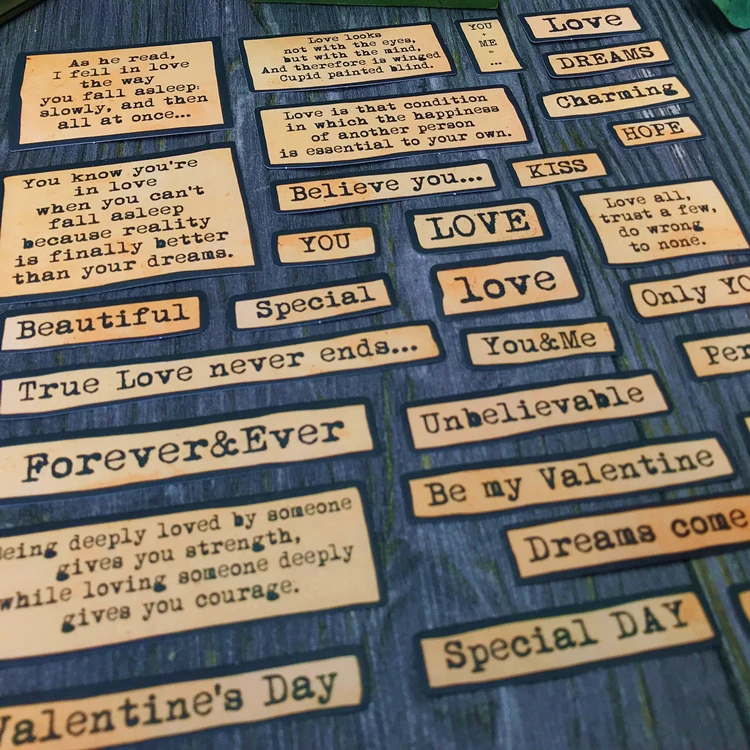 As he read,
I fell in love
the way
you fall asleep:
slowly, and then
all at once...
Love looks
not with the eyes,
but with the mind,
And therefore is winged
Cupid painted blind.
YOU
+
ME
=
...
Love
DREAMS
Charming
HOPE
Love is that condition
in which the happiness
of another person
is essential to your own.
You know you're
in love
when you can't
fall asleep
because reality
is finally better
than your dreams.
Believe you...
KISS
YOU
LOVE
Love all,
trust a few,
do wrong
to none.
Beautiful
Special
love
Only YO
True Love never ends...
You&Me
Per
Forever&Ever
Unbelievable
Be my Valentine
Being deeply loved by someone
gives you strength,
while loving someone deeply
gives you courage.
Dreams come
Special DAY
Valentine's Day